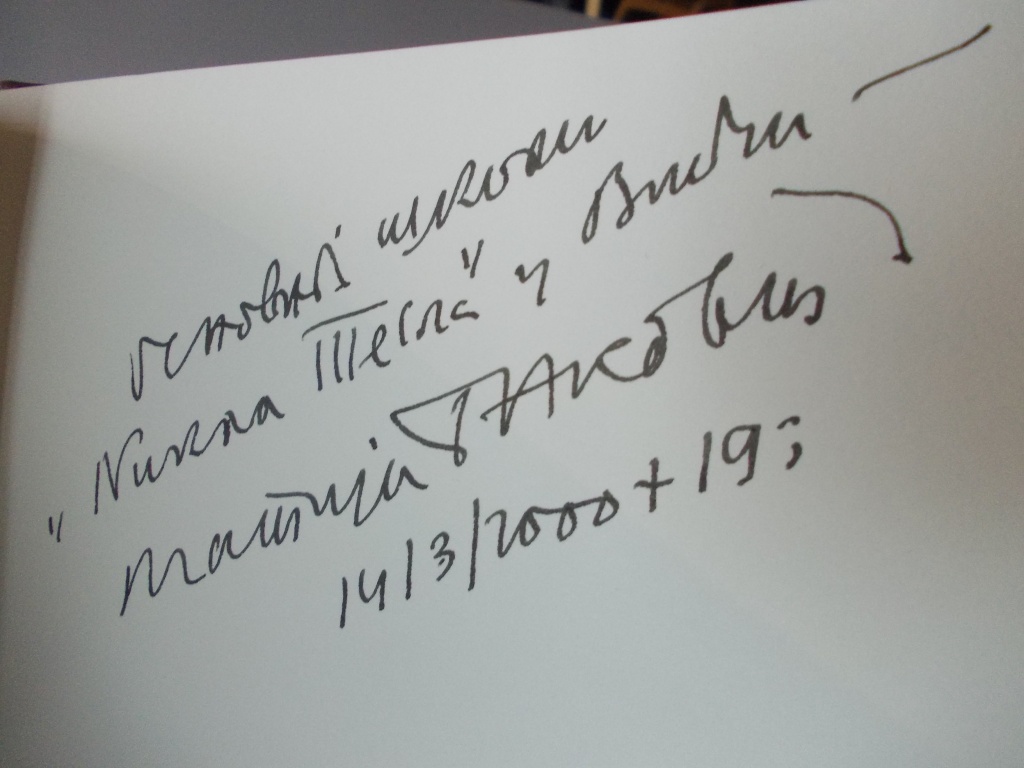 основној школи
"Никола Тесла" у Винчи —
Матија Бећковић
14/3/2000+19;